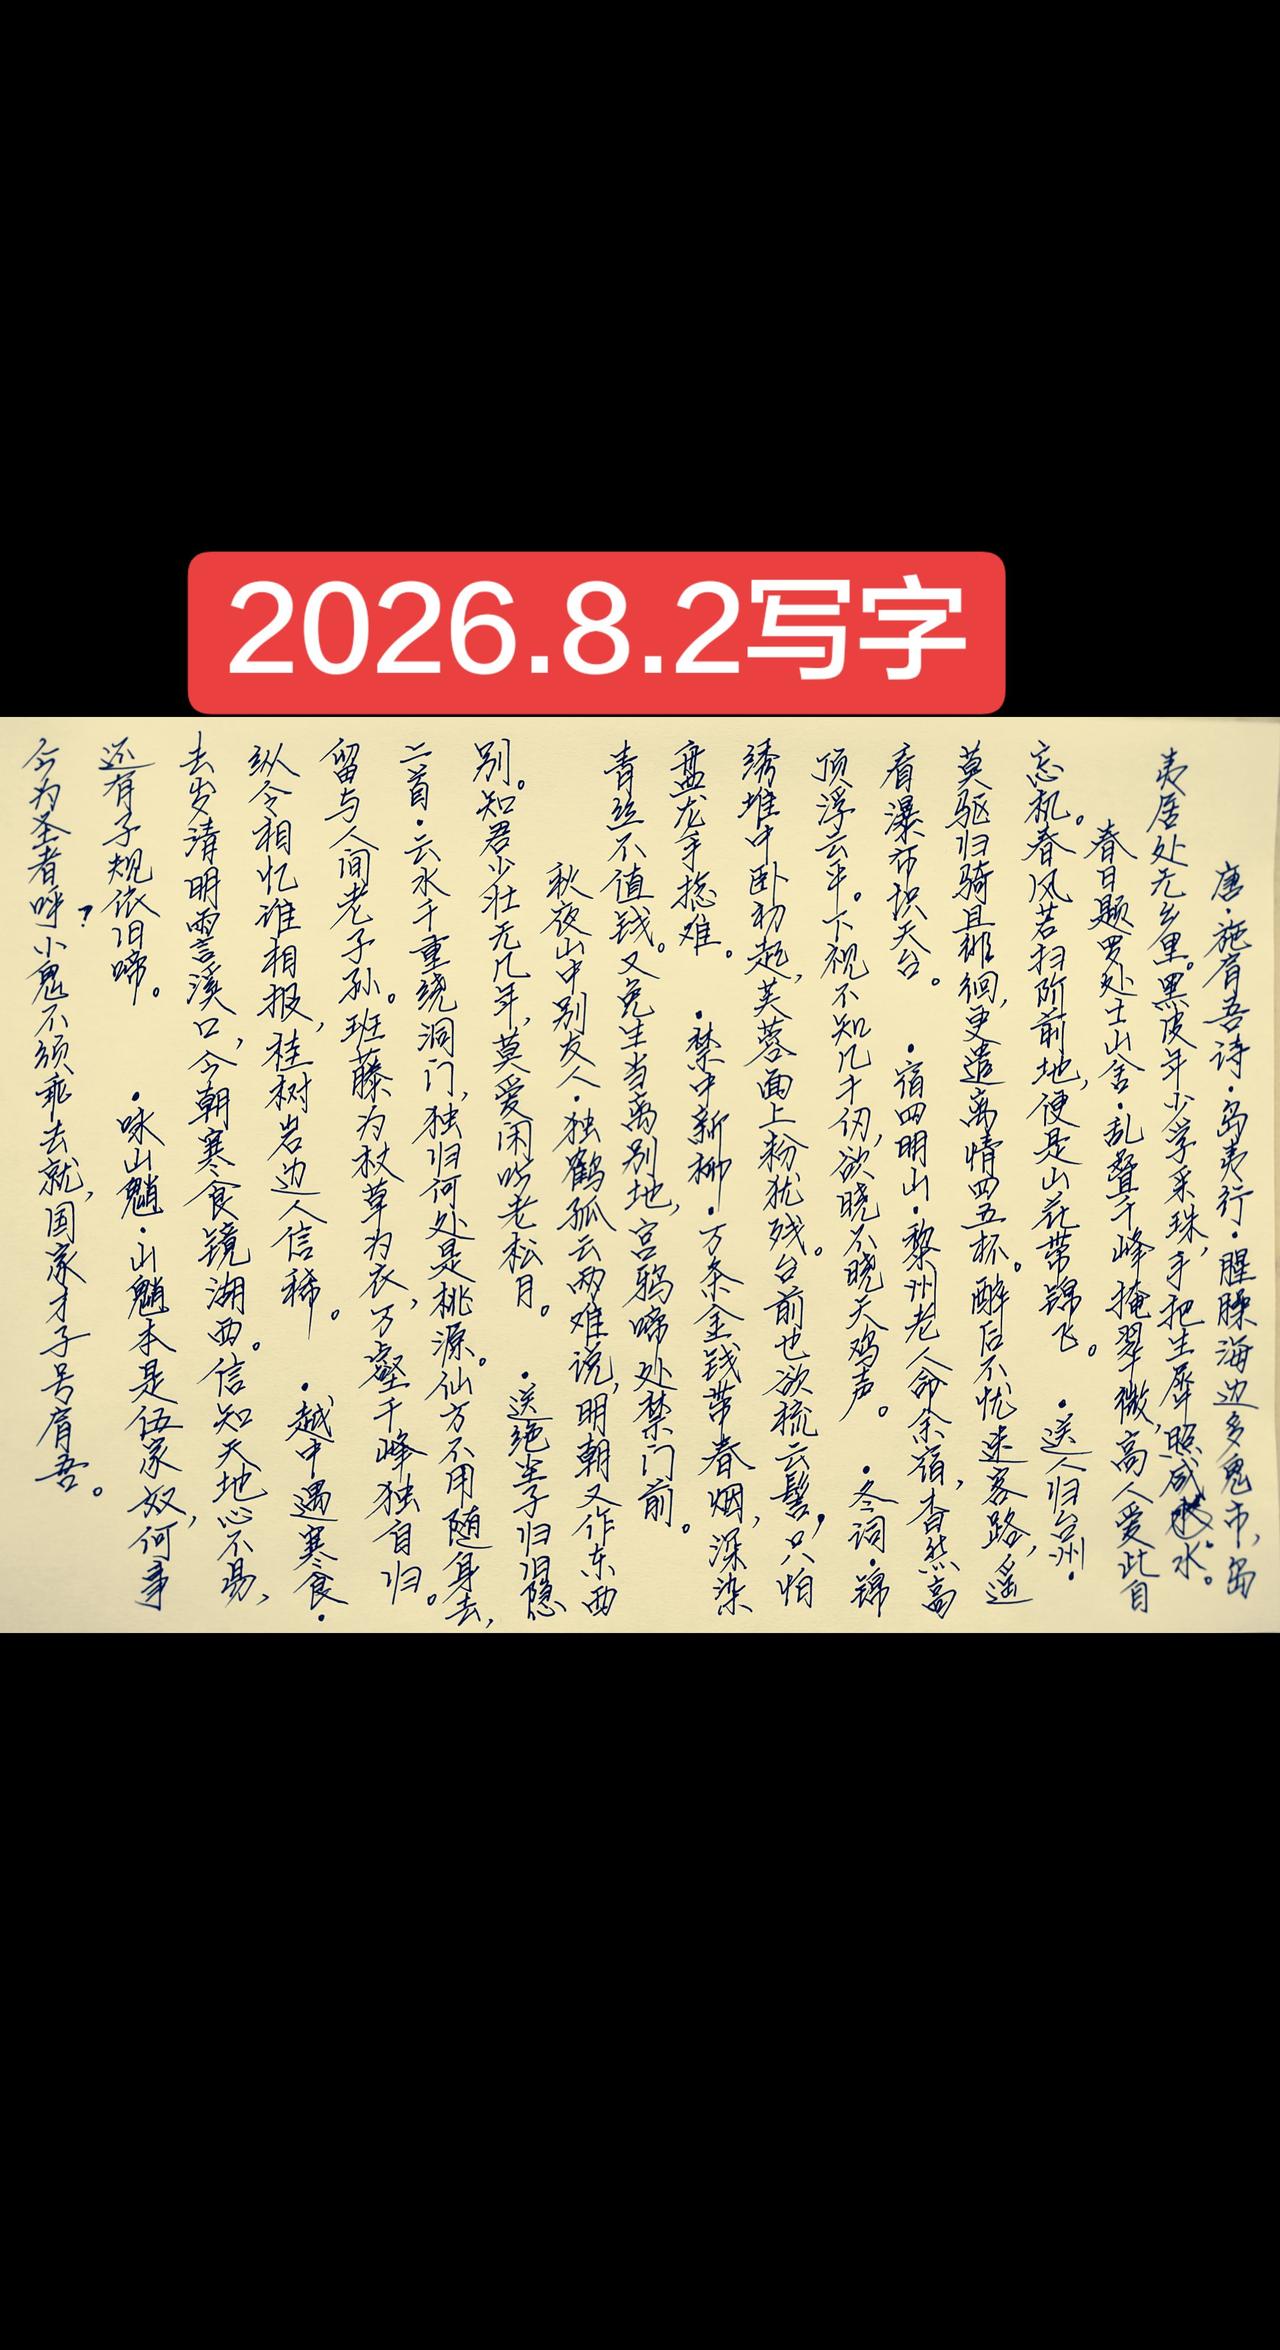 2026.8.2写字
唐·施肩吾诗·岛夷行·腥臊海边多鬼市,岛
夷居处无乡里。黑皮年少学采珠,手把生犀照咸水。
春日题罗处士山舍·乱叠千峰掩翠微,高人爱此自
忘机。春风若扫阶前地,便是山花带锦飞。 ·送人归台州·
莫驱归骑且徘徊,更遣离情四五杯。醉后不忧迷客路,遥
看瀑布识天台。 ·宿四明山·黎洲老人命余宿,杳然高
顶浮云平。下视不知几千仞,欲晓不晓天鸡声。 ·冬词·锦
绣堆中卧初起,芙蓉面上粉犹残。台前也欲梳云髻,只怕
盘龙手捻难。 ·禁中新柳·万条金钱带春烟,深染
青丝不值钱。又免生当离别地,宫鸦啼处禁门前。
秋夜山中别友人·独鹤孤云两难说,明朝又作东西
别。知君少壮无几年,莫爱闲吟老松月。 ·送绝尘子归旧隐
二首·云水千重绕洞门,独归何处是桃源。仙方不用随身去,
留与人间老子孙。班藤为杖草为衣,万壑千峰独自归。
纵令相忆谁相报,桂树岩边人信稀。 ·越中遇寒食·
去岁清明霅溪口,今朝寒食镜湖西。信知天地心不易,
还有子规依旧啼。 ·咏山魈·山魈本是伍家奴,何事
今为圣者呼?小鬼不须乖去就,国家才子号肩吾。